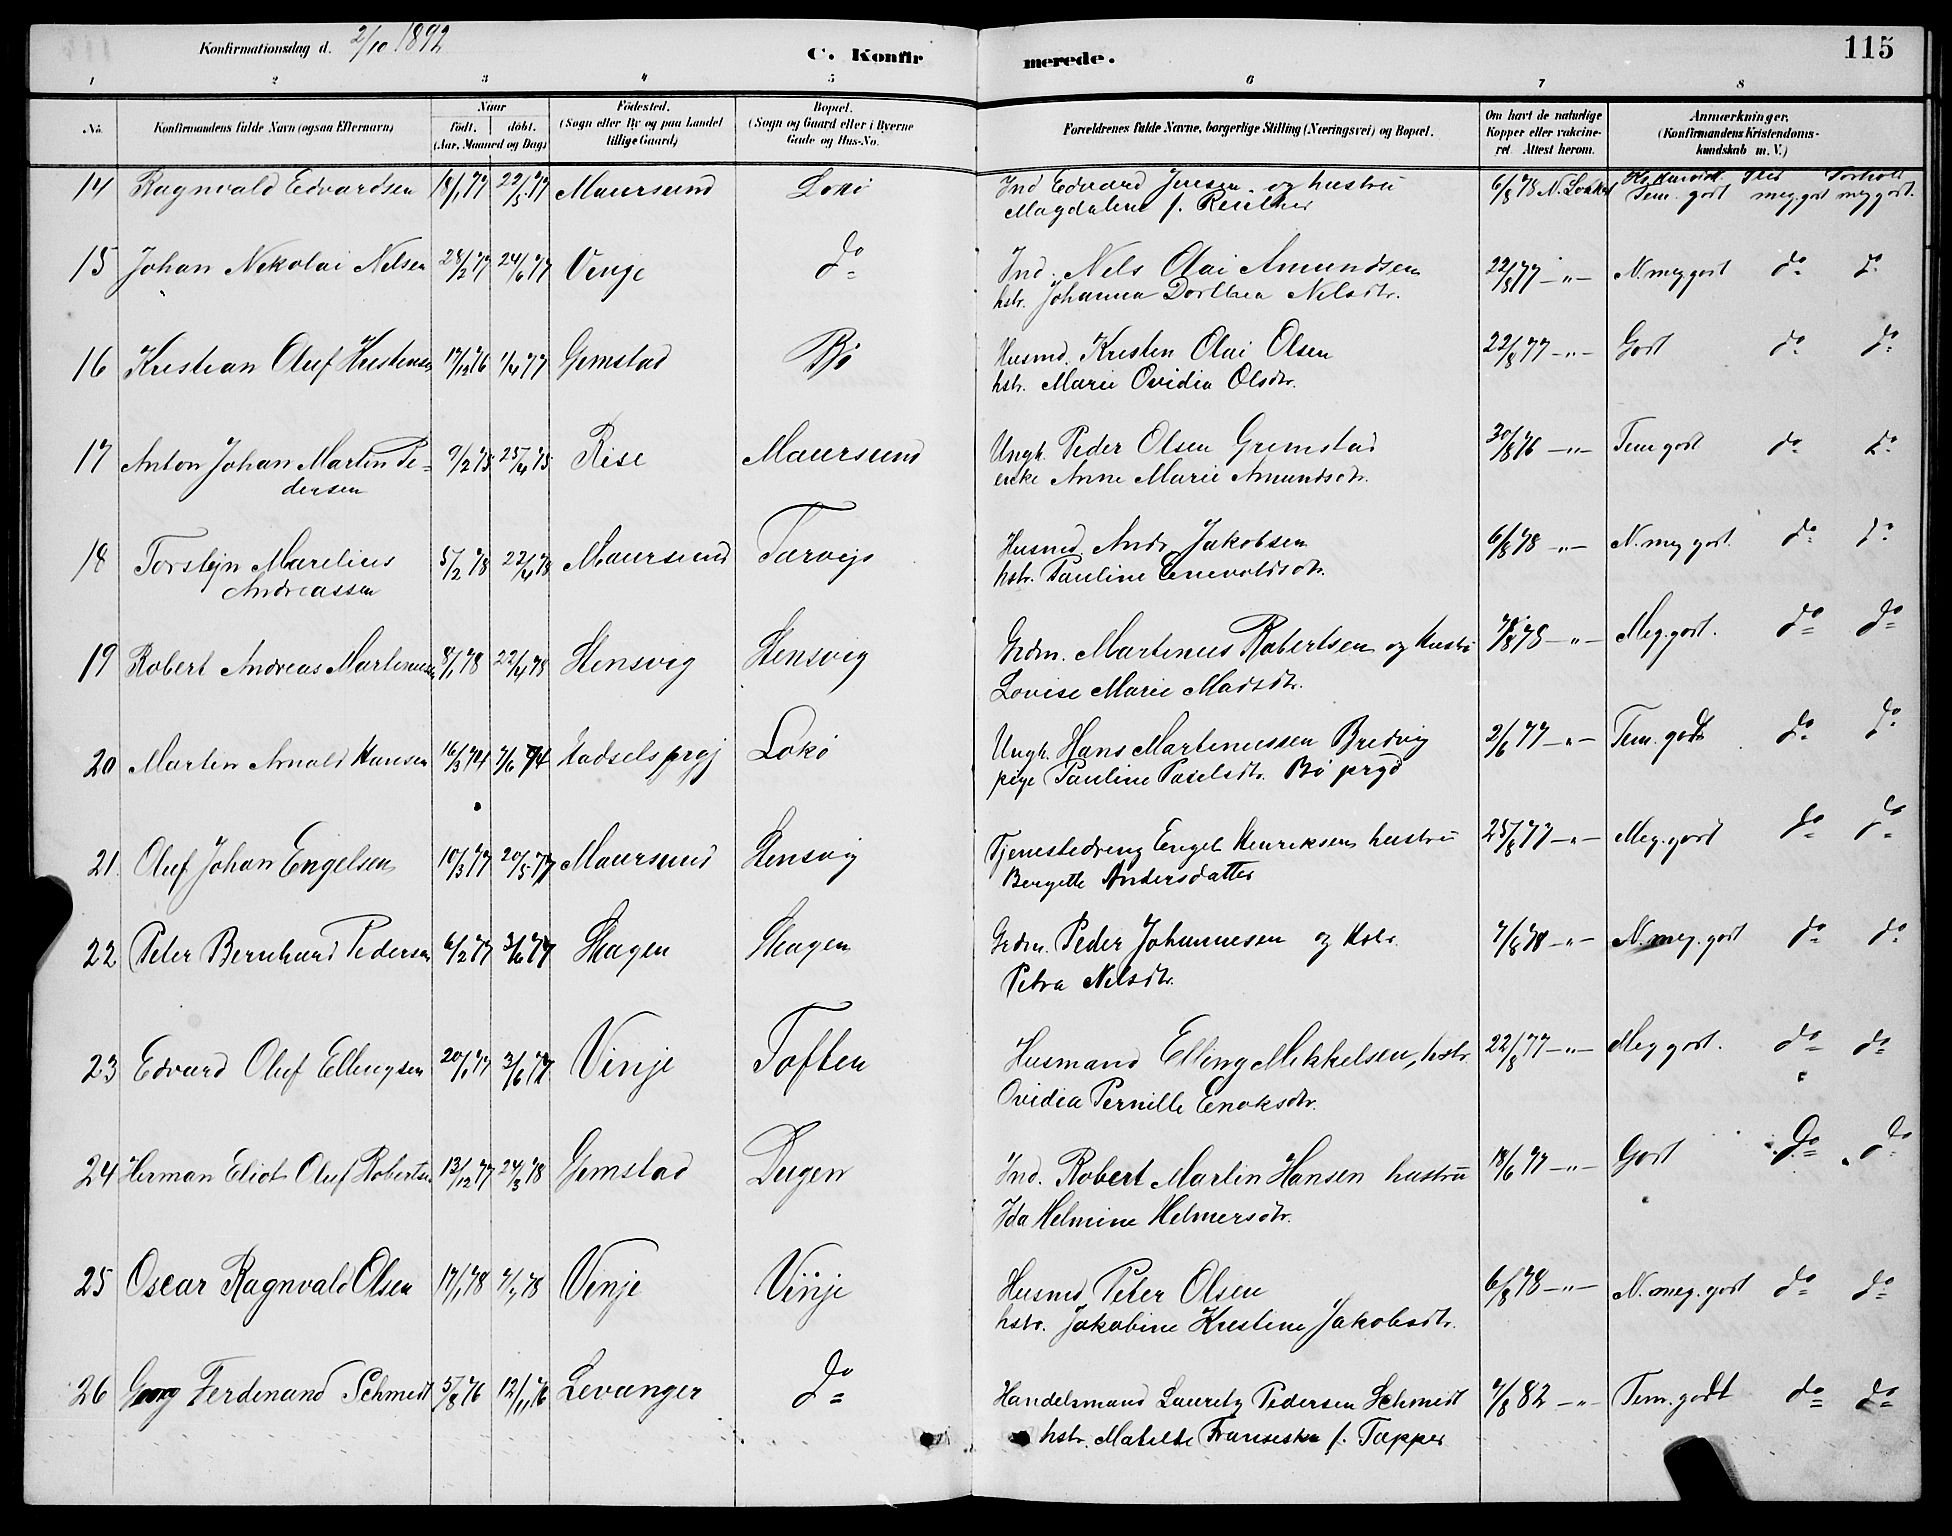 Konfirmationsdag d. 2/10 1892
C. Konfirmerede.
115
1 2 3 4 5 6 7 8
No. Konfirmandens fulde Navn (ogsaa Efternavn) Naar født. døbt. (Aar, Maaned og Dag) Fødested. (Sogn eller By og paa Landet tillige Gaard) Bopæl. (Sogn og Gaard eller i Byerne Gade og Hus-No. Forældrenes fulde Navne, borgerlige Stilling (Næringsvei) og Bopæl. Om havt de naturlige Kopper eller vakcineret. Attest herom. Anmærkninger. (Konfirmandens Kristendomskundskab m. V.)
14 Ragnvald Edvardsen 18/1 77 22/5 77 Maursund Lokö Ind Edvard Jensen og hustru 6/8 78 Flid Forhold
Magdalene f. Tem. godt meg. godt meg godt.
15 Johan Nikolai Nelsen 28/2 77 24/6 77 Vinje do Ind. Nels Olai Amundsen 22/8 77 -"- N. meg godt do do
hstr. Johanna Dorthea Nelsdtr.
16 Kristian Oluf Kristensen 17/12 76 1/4 77 Gimstad Bø Husmd. Kristen Olai Olsen 22/8 77 -"- Godt do do
hstr. Marie Ovidia Olsdtr.
17 Anton Johan Martin Pe- 9/2 75 25/4 75 Rise Maursund Ungk. Peder Olsen Gremstad 30/8 76 -"- Tem godt do do
dersen enke Anne Marie Amundsdtr.
18 Torstejn Marelius 5/2 78 22/4 78 Maursund Tarvejs Husmd. Andr. Jakobsen 6/8 78 -"- N. meg godt. do do
Andreassen hstr. Pauline Enevoldsdtr.
19 Robert Andreas Martinusen 8/1 78 22/4 78 Stensvig Stensvig Grdm. Martinus Robertsen og hustru 7/8 78 -"- Meg. godt. do do
Lovise Marie Madsdtr.
20 Martin Arnold Hansen 16/3 74 7/6 74 Hadsels prgj Lokö Ungk. Hans Martinussen Bredvig 2/6 77 -"- Tem. godt do do
pige Pauline Paulsdtr. Bö prgd
21. Oluf Johan Engelsen 10/3 77 20/5 77 Maursund Stensvig Tjenestedreng Engel Henriksen hustru 25/8 77 -"- Meg. godt do do
Bergette Andersdatter
22 Peter Bernhard Pedersen 6/2 77 3/6 77 Skagen Skagen Grdm. Peder Johannesen og Hstr. 7/8 78 -"- N. meg. godt do do
Petra Nelsdtr.
23 Edvard Oluf Ellingsen 20/1 77 3/6 77 Vinje Toften Husmand Elling Mikkelsen, hstr. 22/8 77 -"- Meg godt. do do
Ovidia Pernille Enoksdtr.
24 Herman Eliot Oluf Robertsen 13/12 77 24/3 78 Gimstad Dugen Ind. Robert Martin Hansen hustru 18/6 77 -"- Godt do do
Ida Helmine Helmersdtr.
25 Oscar Ragnvald Olsen 17/1 78 Vinje Vinje Husmd Peter Olsen 6/8 78 -"- N. meg. godt do do
hstr. Jakobine Kristine Jakobsdtr.
26 Georg Ferdinand Schmidt 5/8 76 12/11 76 Levanger do Handelsmand Lauritz Pedersen Schmidt 7/8 82 -"- Tem. godt do do
hstr. Matilde Franseska f. Tapper